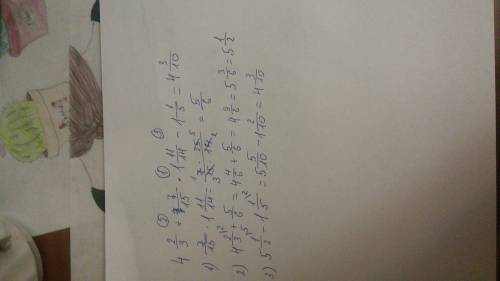 ② ① ③
4 2/3 + 7/15 · 1 11/14 - 1 1/5 = 4 3/10
1) 7/15 · 1 11/14 = 7 · 25/15 · 14 = 5/6
2) 4 2/3 + 5/6 = 4 4/6 + 5/6 = 4 9/6 = 5 3/6 = 5 1/2
3) 5 1/2 - 1 1/5 = 5 5/10 - 1 2/10 = 4 3/10